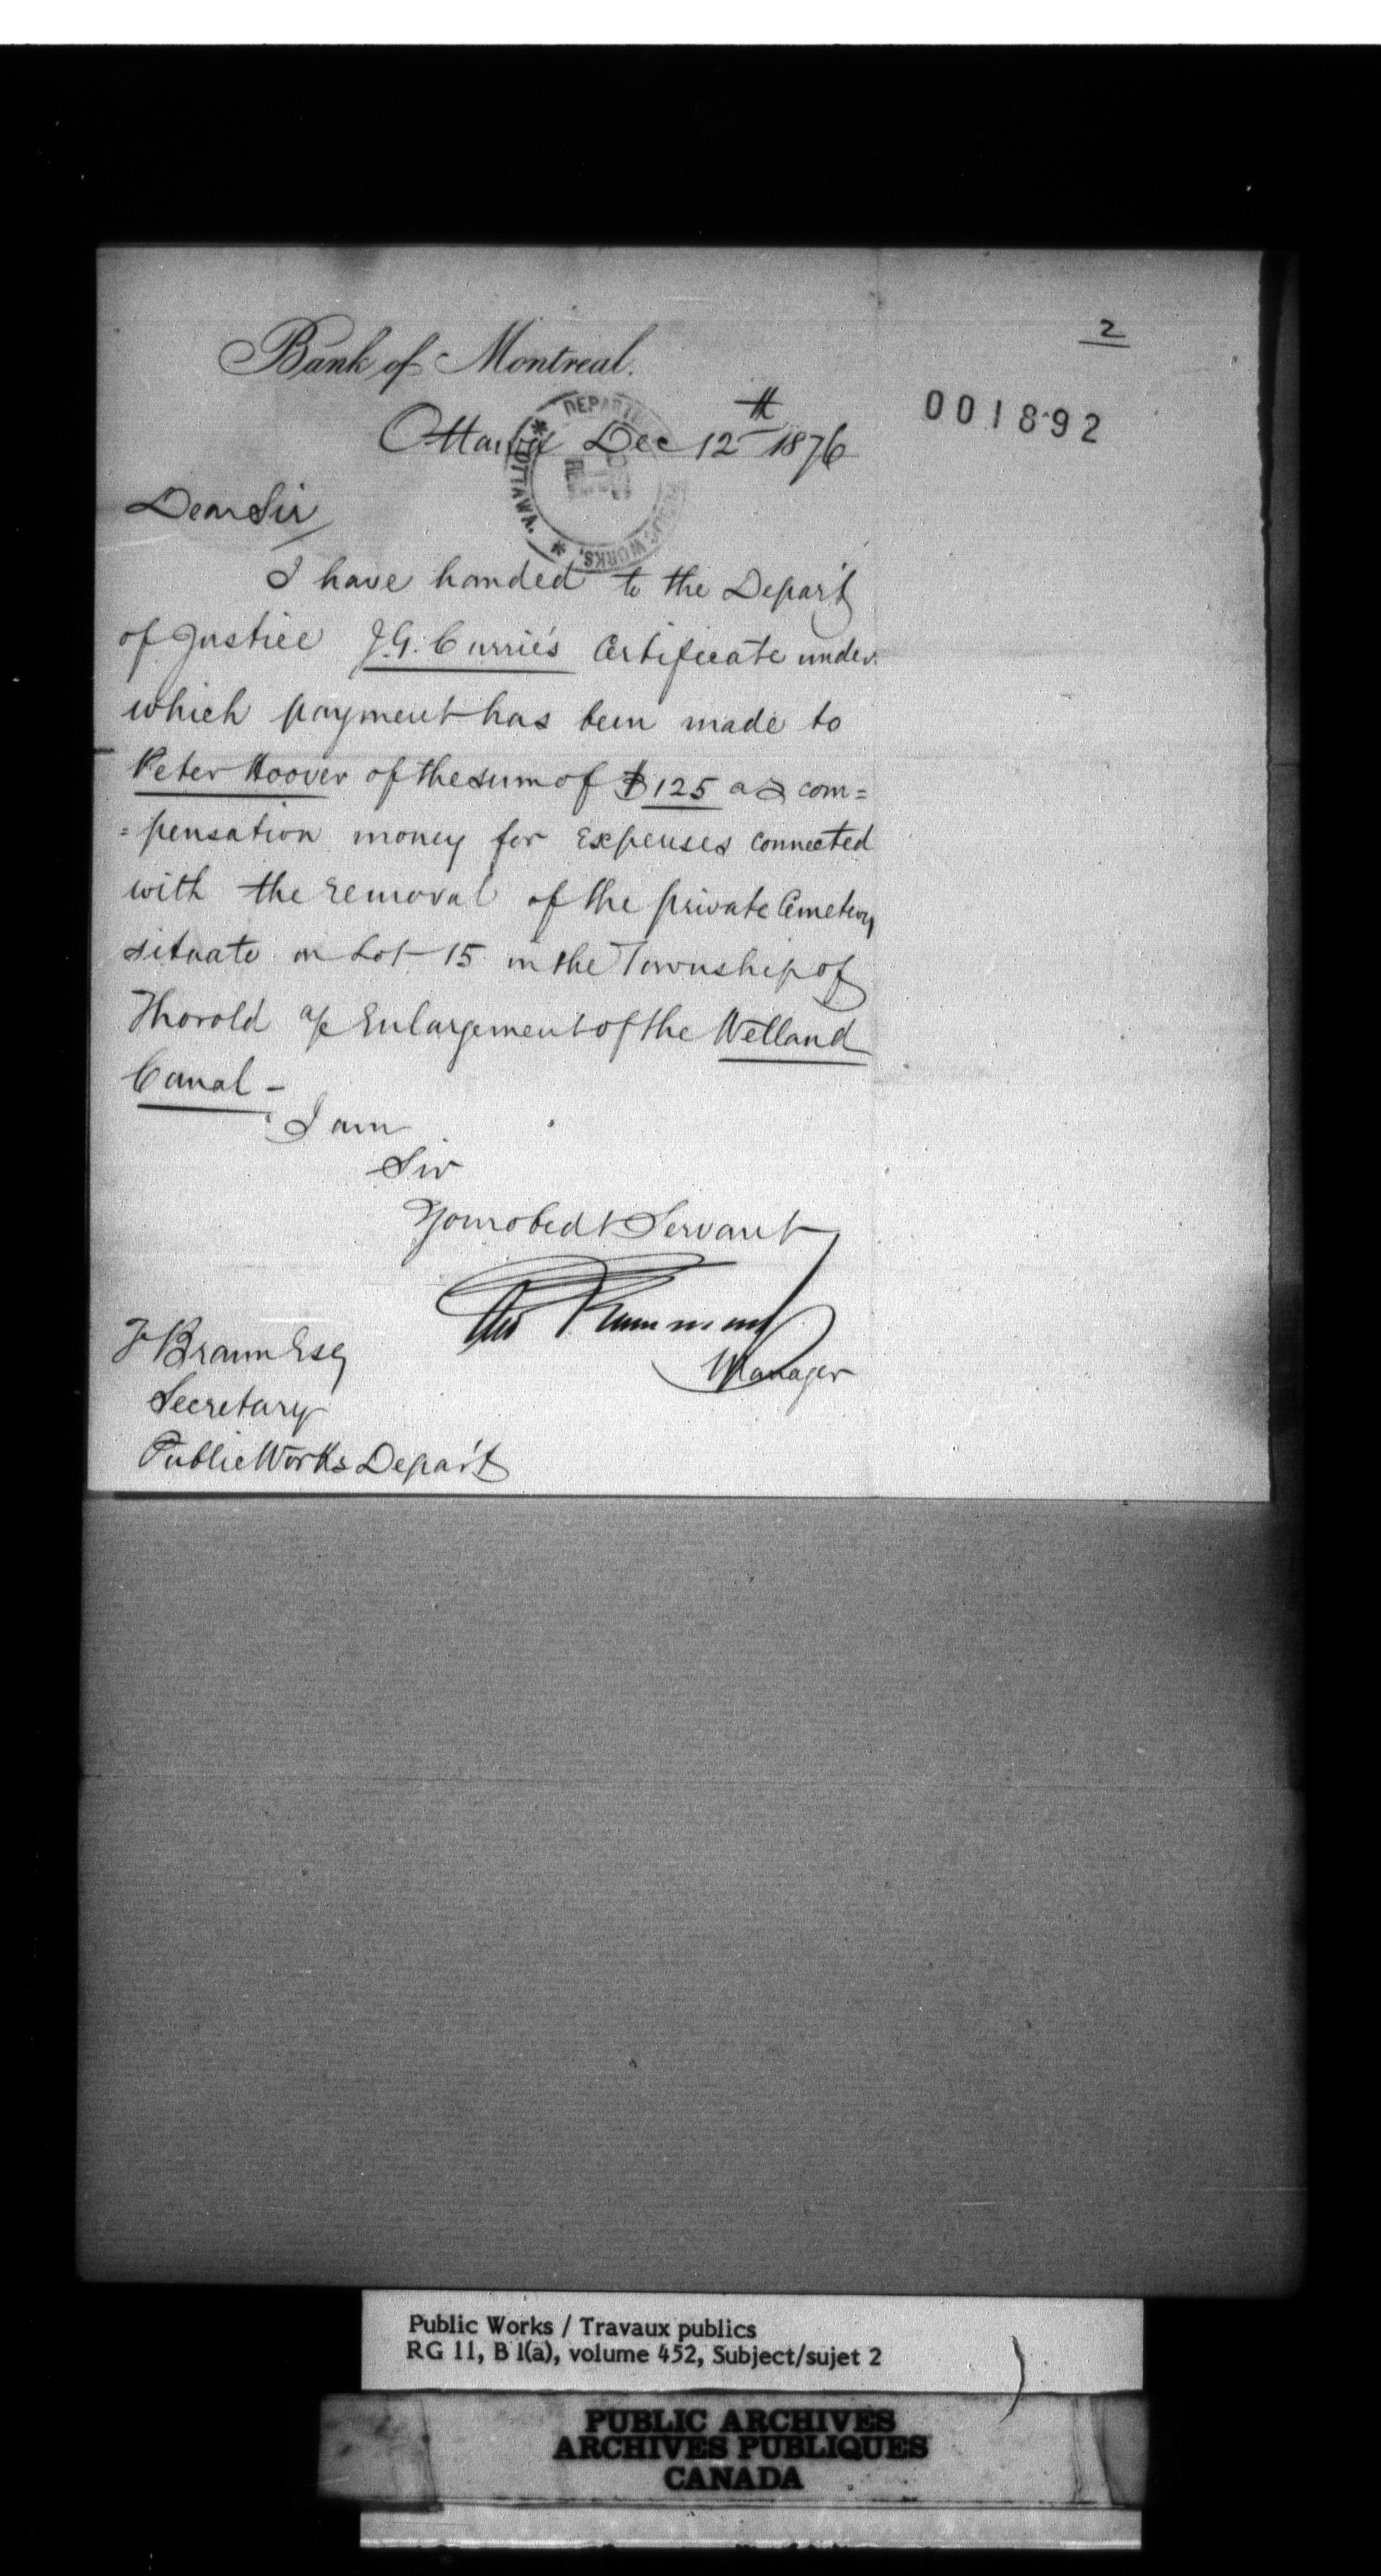 2
Bank of Montreal.
001892
Ottawa Dec 12th 1876
DEPARTM PUBLIC WORKS, * OTTAWA. *
Dear Sir
I have handed to the Depar't
of Justice J.G. Currie's Certificate under
which payment has been made to
Peter Hoover of the sum of $125 as com=
=pensation money for expenses connected
with the removal of the private Cemetery
situate on Lot 15 in the Township of
Thorold a/c Enlargement of the Welland
Canal -
I am
Sir
Your obedt Servant
Drummond
Manager
F Braun Esq
Secretary
Public Works Depar't
Public Works / Travaux publics
RG 11, B 1(a), volume 452, Subject/sujet 2
PUBLIC ARCHIVES
ARCHIVES PUBLIQUES
CANADA